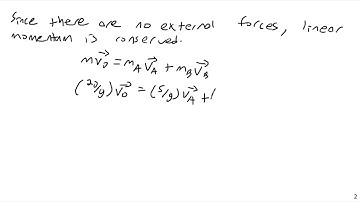 Since there are no external forces, linear
momentum is conserved.
mv⃗₀ = m_A v⃗_A + m_B v⃗_B
(20/g) v⃗₀ = (5/g) v⃗_A +
2